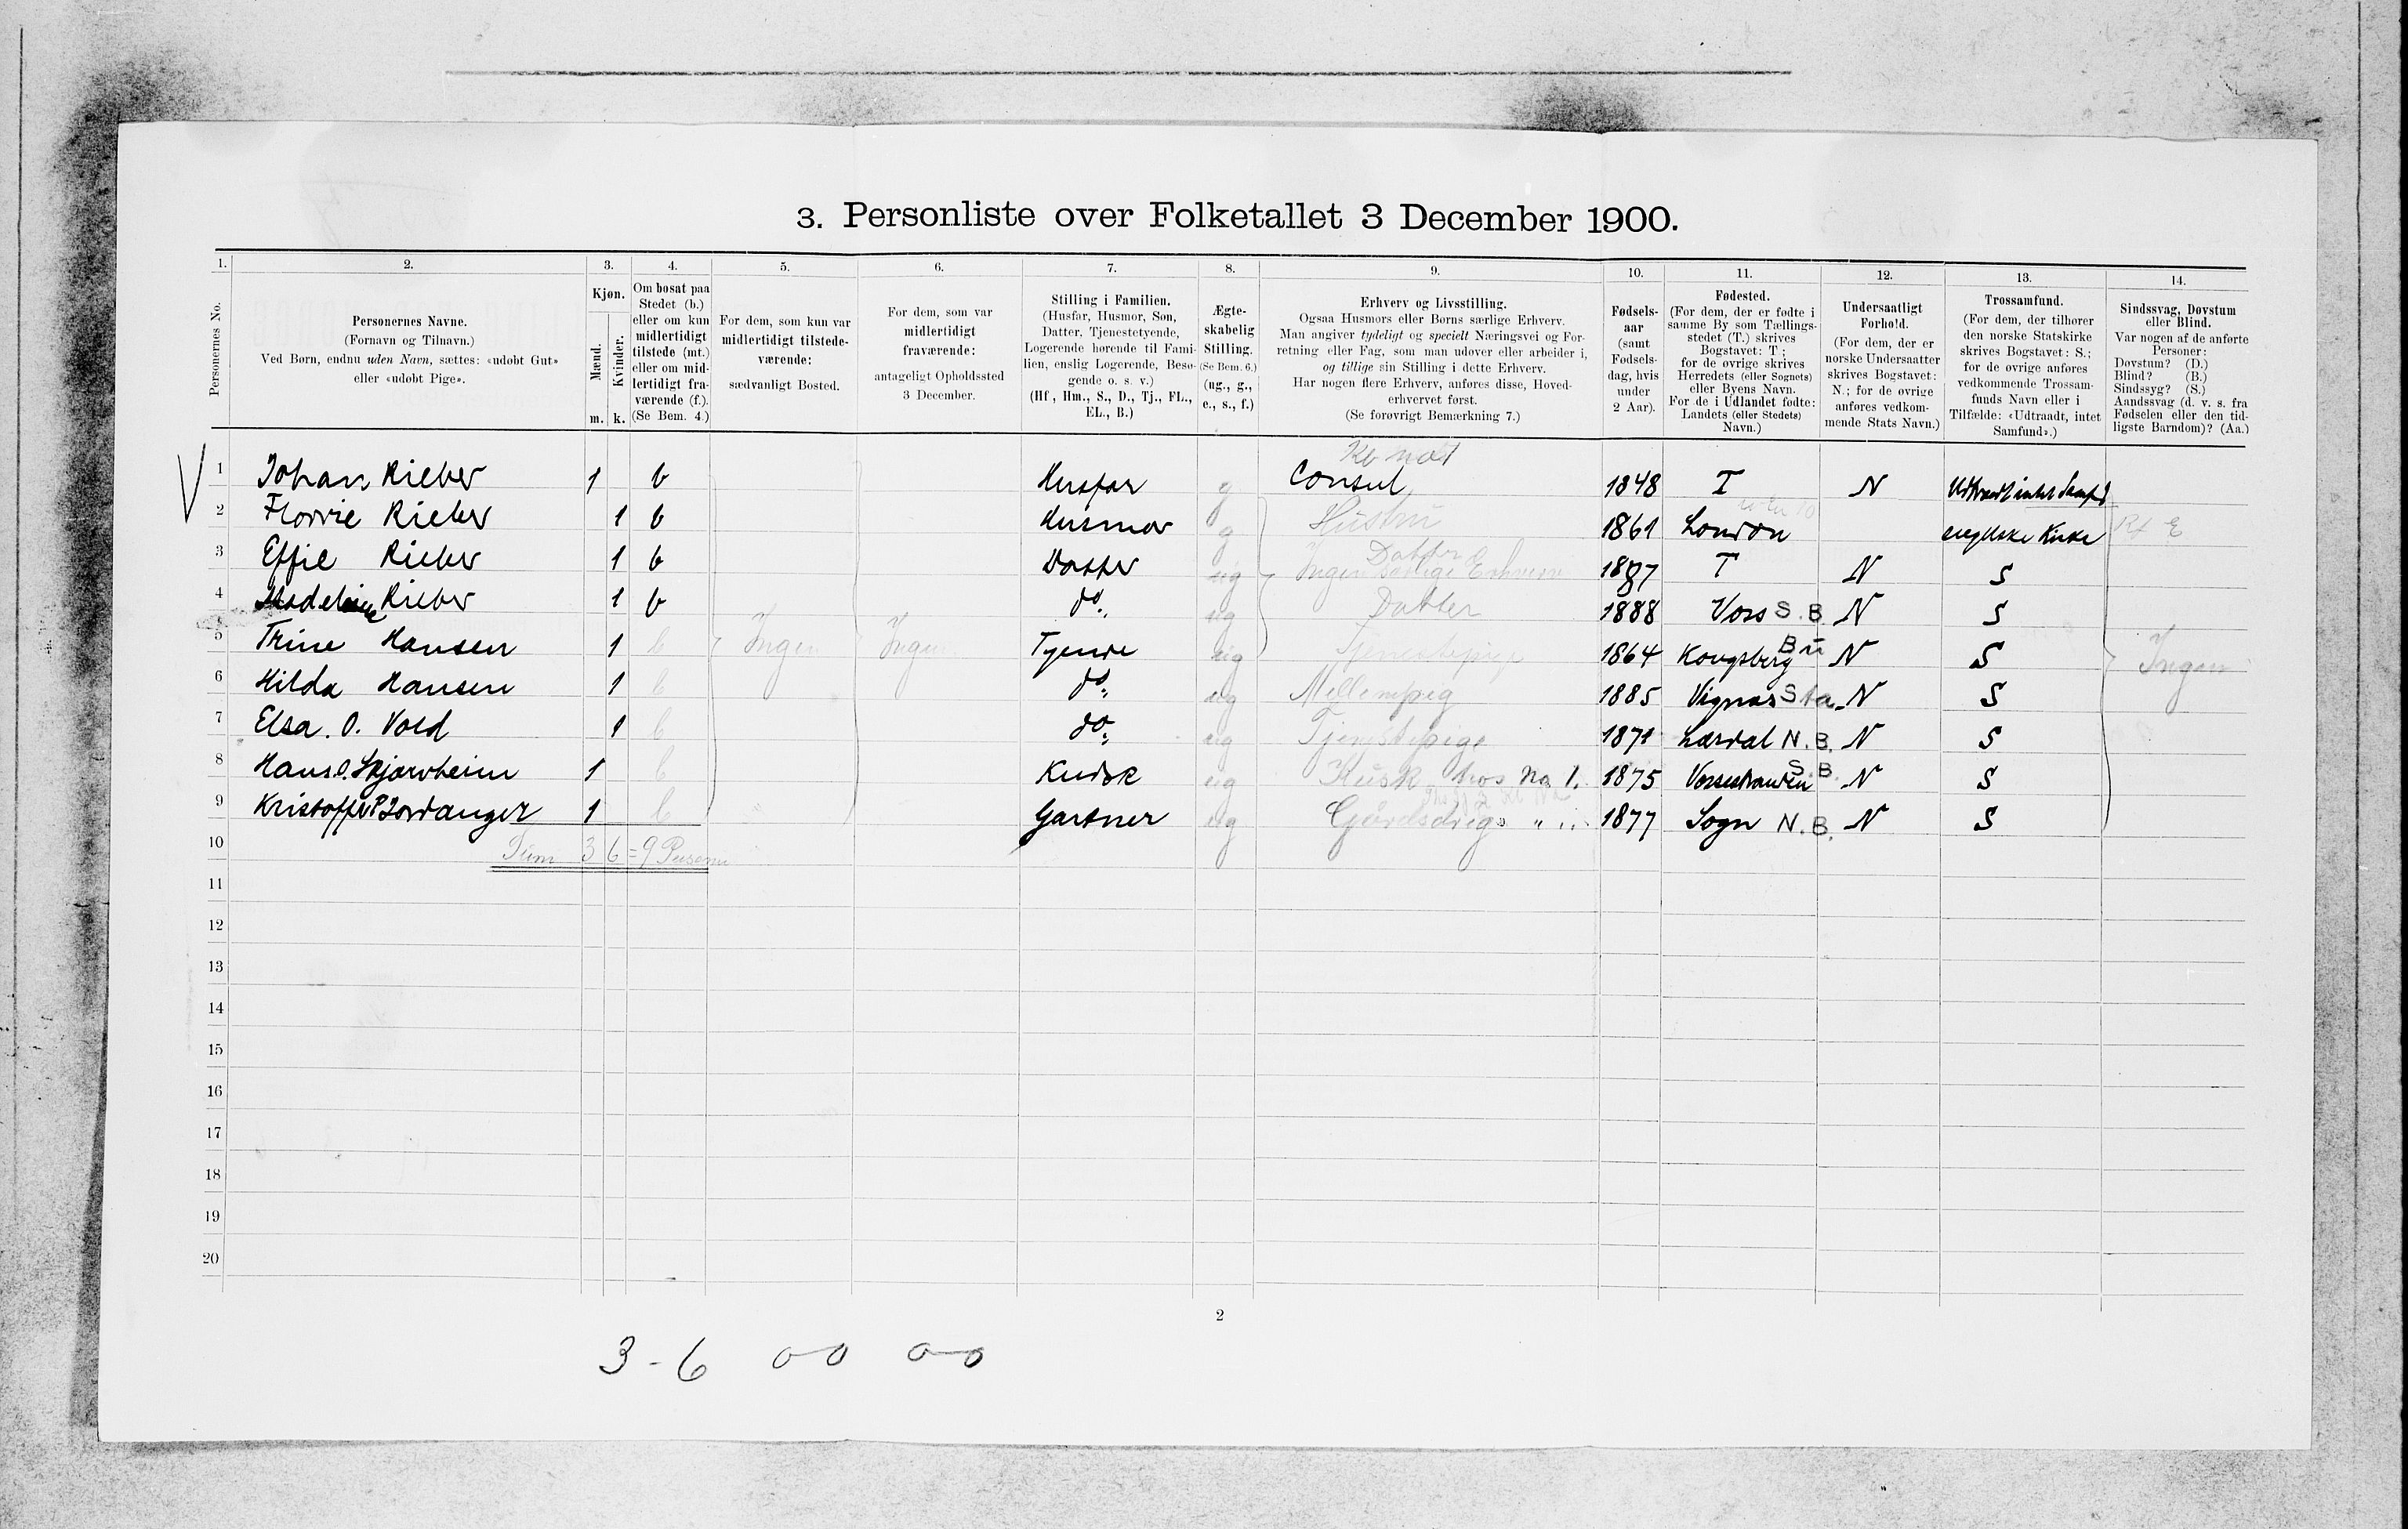 3. Personliste over Folketallet 3 December 1900.
1. 2. 3. 4. 5. 6. 7. 8. 9. 10. 11. 12. 13. 14.
Personernes No.
Personernes Navne.
(Fornavn og Tilnavn.)
Ved Børn, endnu uden Navn, sættes: «udøbt Gut»
eller «udøbt Pige».
Kjøn.
Mænd.
Kvinder.
m. k.
Om bosat paa
Stedet (b.)
eller om kun
midlertidigt
tilstede (mt.)
eller om mid-
lertidigt fra-
værende (f.).
(Se Bem. 4.)
For dem, som kun var
midlertidigt tilstede-
værende:
sædvanligt Bosted.
For dem, som var
midlertidigt
fraværende:
antageligt Opholdssted
3 December.
Stilling i Familien.
(Husfar, Husmor, Søn,
Datter, Tjenestetyende,
Logerende hørende til Fami-
lien, enslig Logerende, Besø-
gende o. s. v.)
(Hf, Hm., S., D., Tj., FL.,
EL., B.)
Ægte-
skabelig
Stilling.
(Se Bem. 6.)
(ug., g.,
e., s., f.)
Erhverv og Livsstilling.
Ogsaa Husmors eller Børns særlige Erhverv.
Man angiver tydeligt og specielt Næringsvei og For-
retning eller Fag, som man udøver eller arbeider i,
og tillige sin Stilling i dette Erhverv.
Har nogen flere Erhverv, anføres disse, Hoved-
erhvervet først.
(Se forøvrigt Bemærkning 7.)
Fødsels-
aar
(samt
Fødsels-
dag, hvis
under
2 Aar).
Fødested.
(For dem, der er fødte i
samme By som Tællings-
stedet (T.) skrives
Bogstavet: T;
for de øvrige skrives
Herredets (eller Sognets)
eller Byens Navn.
For de i Udlandet fødte:
Landets (eller Stedets)
Navn.)
Undersaatligt
Forhold.
(For dem, der er
norske Undersaatter
skrives Bogstavet:
N.; for de øvrige
anføres vedkom-
mende Stats Navn.)
Trossamfund.
(For dem, der tilhører
den norske Statskirke
skrives Bogstavet: S.;
for de øvrige anføres
vedkommende Trossam-
funds Navn eller i
Tilfælde: «Udtraadt, intet
Samfund».)
Sindssvag, Døvstum
eller Blind.
Var nogen af de anførte
Personer:
Døvstum? (D.)
Blind? (B.)
Sindssyg? (S.)
Aandssvag (d. v. s. fra
Fødselen eller den tid-
ligste Barndom)? (Aa.)
1 Johan Rieber 1 b Husfar g Consul 1848 T N Udtraadt intet Samfd
2 Florrie Rieber 1 b Husmor g Hustru 1861 London engelske Kirke
3 Effie Rieber 1 b Datter ug Datter Ingen særlige Erhverv 1887 T N S
4 Madeleine Rieber 1 b do. ug Datter 1888 Voss S.B. N S
5 Trine Hansen 1 b Ingen Ingen Tyende ug Tjenestepige 1864 Kongsberg Bu N S Ingen
6 Hilda Hansen 1 b do. ug Mellempig 1885 Vignæs Sta. N S
7 Elsa. O. Vold 1 b do. ug Tjenstepige 1871 Lærdal N.B. N S
8 Hans O. Skjærvheim 1 b Kudsk ug Kusk hos No 1. 1875 Vossestranden S.B. N S
9 Kristoffer P Lordanger 1 b Gartner ug Gårdsdrgs " " 1877 Sogn N.B. N S
10 Sum 3 6 = 9 Personer
11
12
13
14
15
16
17
18
19
20
2
3 - 6 0-0 0-0